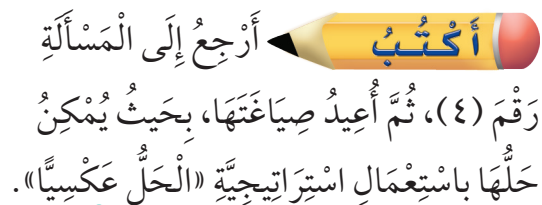 أَكْتُبُ أَرْجِعُ إِلَى الْمَسْأَلَةِ
رَقْمَ (٤)، ثُمَّ أُعِيدُ صِيَاغَتَهَا، بِحَيثُ يُمْكِنُ
حَلُّهَا باسْتِعْمَالِ اسْتِرَاتِيجِيَّةِ «الْحَلُّ عَكْسِيًّا».